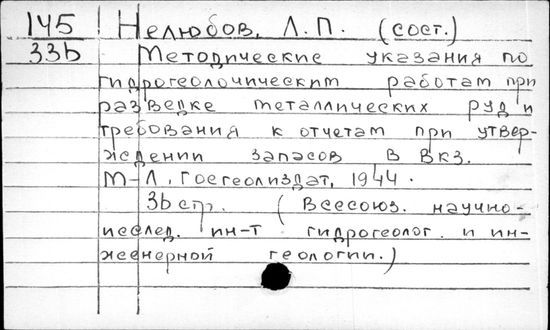 145 Нелюбов, Л.П. (сост.)
33b Методические указания по
гидрогеологическим работам при
разведке металлических руд и
требования к отчетам при утвер-
ждении запасов в ВКЗ.
М-Л, Госгеолиздат, 1944.
36 стр. (Всесоюз. научно-
исслед. ин-т гидрогеолог. и ин-
женерной геологии.)